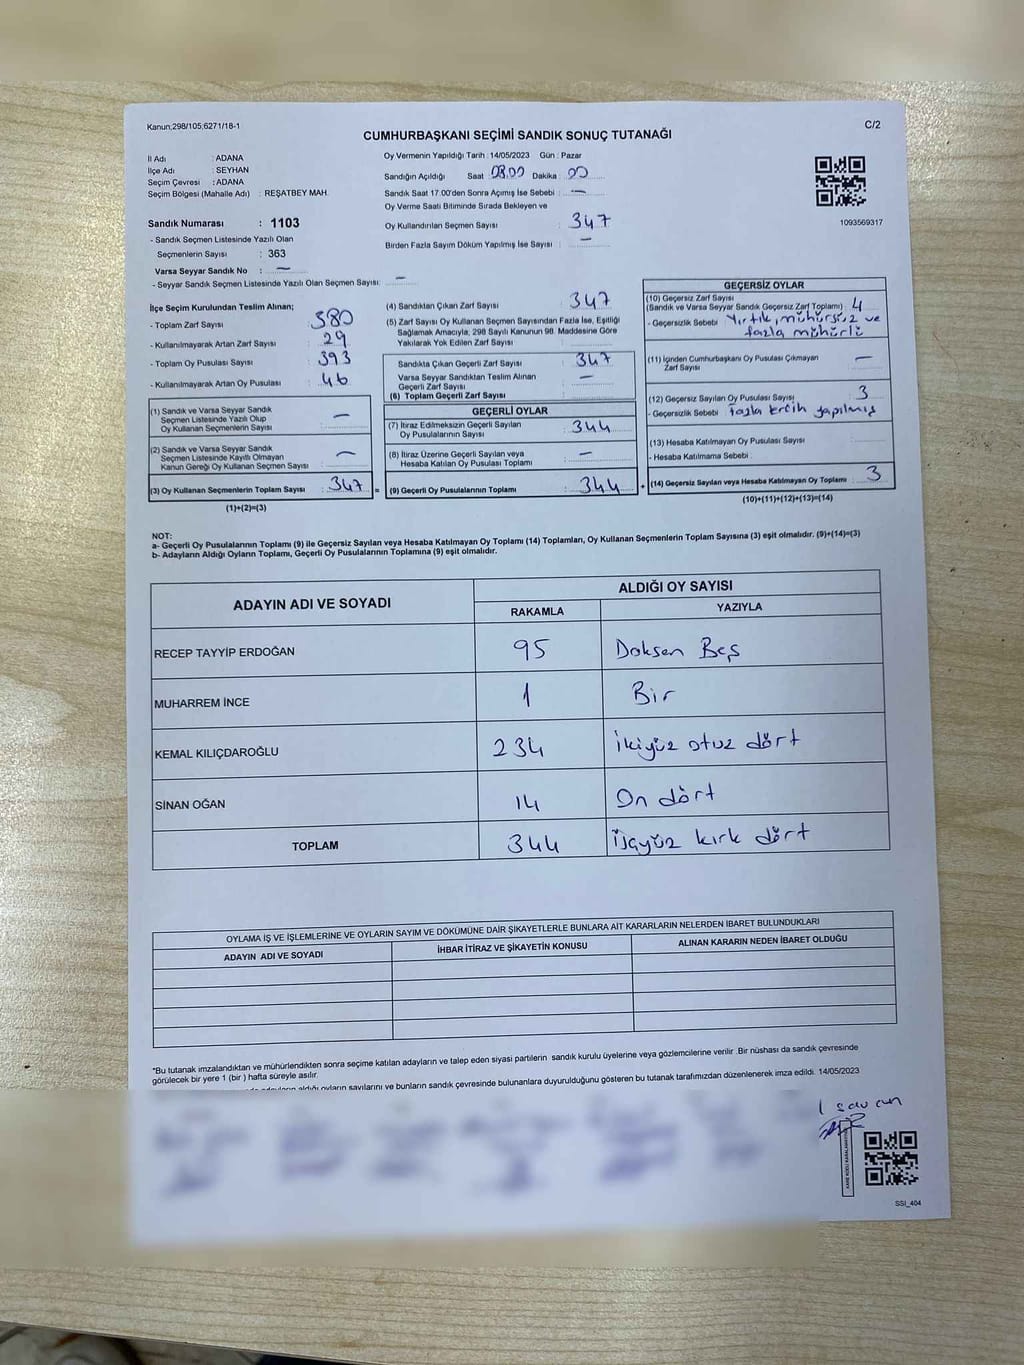 Kanun;298/105;6271/18-1
C/2
CUMHURBAŞKANI SEÇİMİ SANDIK SONUÇ TUTANAĞI
İl Adı : ADANA
İlçe Adı : SEYHAN
Seçim Çevresi : ADANA
Seçim Bölgesi (Mahalle Adı) : REŞATBEY MAH.
Sandık Numarası : 1103
- Sandık Seçmen Listesinde Yazılı Olan
Seçmenlerin Sayısı : 363
Varsa Seyyar Sandık No : —
- Seyyar Sandık Seçmen Listesinde Yazılı Olan Seçmen Sayısı: —
Oy Vermenin Yapıldığı Tarih : 14/05/2023 Gün : Pazar
Sandığın Açıldığı Saat : 08.00 Dakika : 00
Sandık Saat 17.00'den Sonra Açımış İse Sebebi : —
Oy Verme Saati Bitiminde Sırada Bekleyen ve
Oy Kullandırılan Seçmen Sayısı : 347
Birden Fazla Sayım Döküm Yapılmış İse Sayısı : —
1093569317
İlçe Seçim Kurulundan Teslim Alınan;
- Toplam Zarf Sayısı : 380
- Kullanılmayarak Artan Zarf Sayısı : 29
- Toplam Oy Pusulası Sayısı : 393
- Kullanılmayarak Artan Oy Pusulası : 46
(1) Sandık ve Varsa Seyyar Sandık
Seçmen Listesinde Yazılı Olup
Oy Kullanan Seçmenlerin Sayısı : —
(2) Sandık ve Varsa Seyyar Sandık
Seçmen Listesinde Kayıtlı Olmayan
Kanun Gereği Oy Kullanan Seçmen Sayısı : —
(3) Oy Kullanan Seçmenlerin Toplam Sayısı : 347 =
(1)+(2)=(3)
(4) Sandıktan Çıkan Zarf Sayısı : 347
(5) Zarf Sayısı Oy Kullanan Seçmen Sayısından Fazla İse, Eşitliği
Sağlamak Amacıyla, 298 Sayılı Kanunun 98. Maddesine Göre
Yakılarak Yok Edilen Zarf Sayısı :
Sandıkta Çıkan Geçerli Zarf Sayısı : 347
Varsa Seyyar Sandıktan Teslim Alınan
Geçerli Zarf Sayısı : —
(6) Toplam Geçerli Zarf Sayısı :
GEÇERLİ OYLAR
(7) İtiraz Edilmeksizin Geçerli Sayılan
Oy Pusulalarının Sayısı : 344
(8) İtiraz Üzerine Geçerli Sayılan veya
Hesaba Katılan Oy Pusulası Toplamı : —
(9) Geçerli Oy Pusulalarının Toplamı : 344 +
GEÇERSİZ OYLAR
(10) Geçersiz Zarf Sayısı
(Sandık ve Varsa Seyyar Sandık Geçersiz Zarf Toplamı) : 4
- Geçersizlik Sebebi : Yırtık, mühürsüz ve
fazla mühürlü
(11) İçinden Cumhurbaşkanı Oy Pusulası Çıkmayan
Zarf Sayısı : —
(12) Geçersiz Sayılan Oy Pusulası Sayısı : 3
- Geçersizlik Sebebi : fazla tercih yapılmış
(13) Hesaba Katılmayan Oy Pusulası Sayısı :
- Hesaba Katılmama Sebebi :
(14) Geçersiz Sayılan veya Hesaba Katılmayan Oy Toplamı : 3
(10)+(11)+(12)+(13)=(14)
NOT:
a- Geçerli Oy Pusulalarının Toplamı (9) ile Geçersiz Sayılan veya Hesaba Katılmayan Oy Toplamı (14) Toplamları, Oy Kullanan Seçmenlerin Toplam Sayısına (3) eşit olmalıdır. (9)+(14)=(3)
b- Adayların Aldığı Oyların Toplamı, Geçerli Oy Pusulalarının Toplamına (9) eşit olmalıdır.
ADAYIN ADI VE SOYADI ALDIĞI OY SAYISI
RAKAMLA YAZIYLA
RECEP TAYYİP ERDOĞAN 95 Doksen Beş
MUHARREM İNCE 1 Bir
KEMAL KILIÇDAROĞLU 234 İkiyüz otuz dört
SİNAN OĞAN 14 On dört
TOPLAM 344 Üçyüz kırk dört
OYLAMA İŞ VE İŞLEMLERİNE VE OYLARIN SAYIM VE DÖKÜMÜNE DAİR ŞİKAYETLERLE BUNLARA AİT KARARLARIN NELERDEN İBARET BULUNDUKLARI
ADAYIN ADI VE SOYADI İHBAR İTİRAZ VE ŞİKAYETİN KONUSU ALINAN KARARIN NEDEN İBARET OLDUĞU
*Bu tutanak imzalandıktan ve mühürlendikten sonra seçime katılan adayların ve talep eden siyasi partilerin sandık kurulu üyelerine veya gözlemcilerine verilir .Bir nüshası da sandık çevresinde
görülecek bir yere 1 (bir ) hafta süreyle asılır.
aldığı oyların sayılarını ve bunların sandık çevresinde bulunanlara duyurulduğunu gösteren bu tutanak tarafımızdan düzenlenerek imza edildi. 14/05/2023
SSI_404